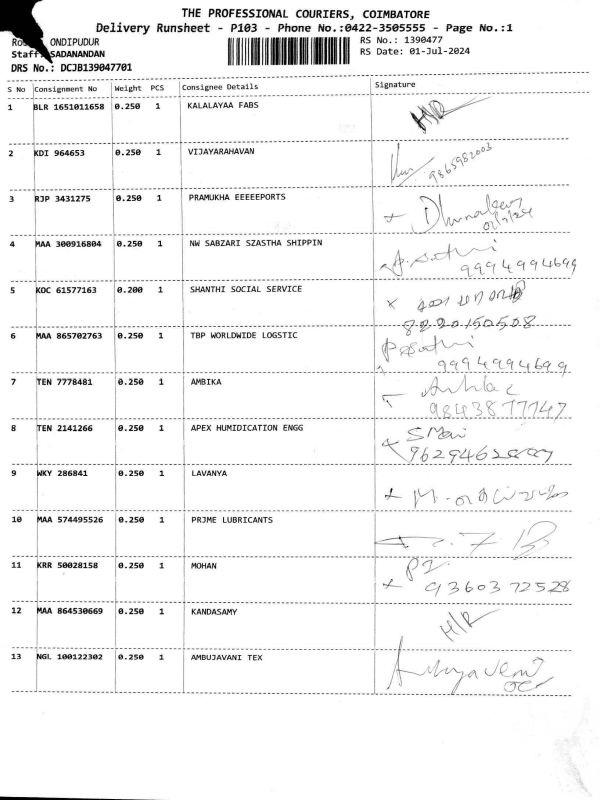 THE PROFESSIONAL COURIERS, COIMBATORE
Delivery Runsheet - P103 - Phone No.:0422-3505555 - Page No.:1
ONDIPUDUR
RS No.: 1390477
Staff: SADANANDAN
RS Date: 01-Jul-2024
DRS No.: DCJB139047701
S No Consignment No Weight PCS Consignee Details Signature
1 BLR 1651011658 0.250 1 KALALAYAA FABS H/R
2 KDI 964653 0.250 1 VIJAYARAHAVAN
9865982003
3 RJP 3431275 0.250 1 PRAMUKHA EEEEEPORTS
4 MAA 300916804 0.250 1 NW SABZARI SZASTHA SHIPPIN
9994994699
5 KOC 61577163 0.200 1 SHANTHI SOCIAL SERVICE
8220150508
6 MAA 865702763 0.250 1 TBP WORLDWIDE LOGSTIC
9994994699
7 TEN 7778481 0.250 1 AMBIKA
8 TEN 2141266 0.250 1 APEX HUMIDICATION ENGG S Mani
9 WKY 286841 0.250 1 LAVANYA
10 MAA 574495526 0.250 1 PRJME LUBRICANTS
11 KRR 50028158 0.250 1 MOHAN
9360372528
12 MAA 864530669 0.250 1 KANDASAMY H/R
13 NGL 100122302 0.250 1 AMBUJAVANI TEX